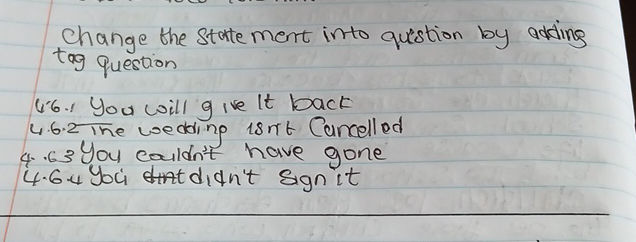 Change the Statement into question by adding
tag question
4.6.1 You will give It back
4.6.2 The wedding isn't Cancelled
4.6.3 You couldn't have gone
4.6.4 You didn't sign it